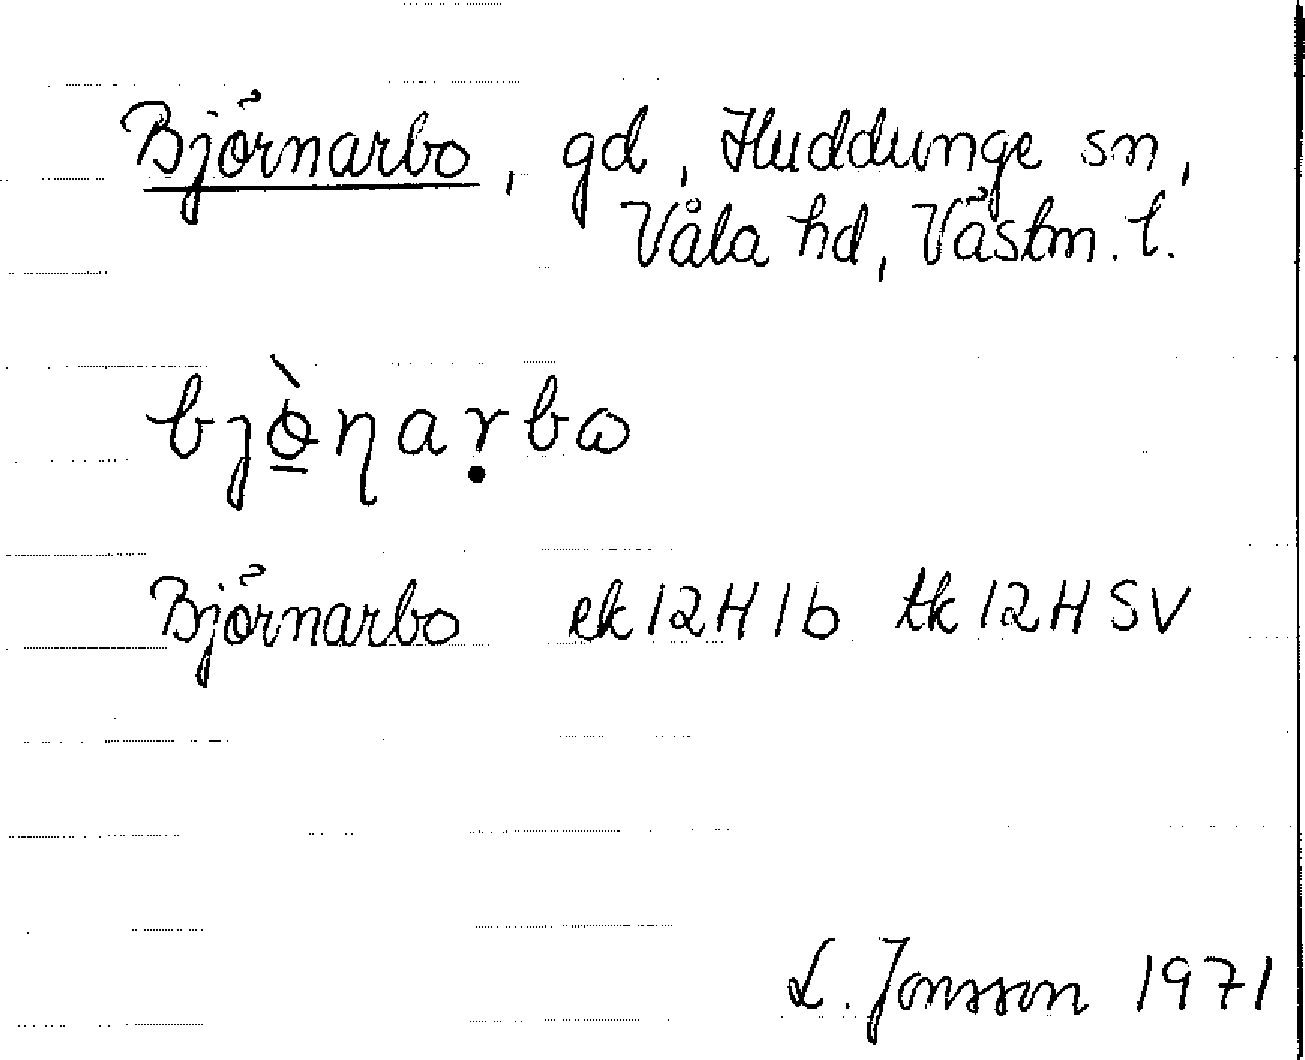 Björnarbo, gd, Huddunge sn,
Våla hd, Västm. l.
bjø̱̀ŋaṛbɷ
Björnarbo ek 12H 1b tk 12H SV
L. Jonsson 1971